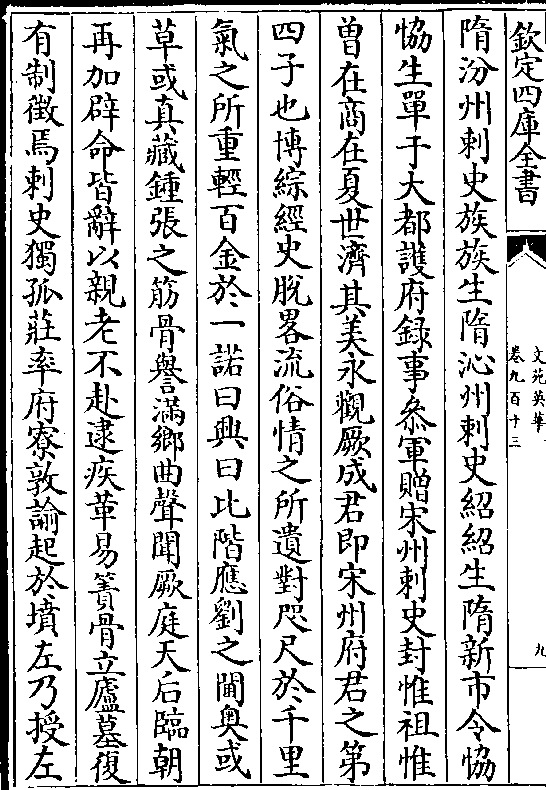 欽定四庫全書
文苑英華
卷九百十三
九
隋汾州刺史族族生隋沁州刺史紹紹生隋新市令恊
恊生單于大都護府録事叅軍贈宋州刺史封惟祖惟
曽在商在夏世濟其美永觀厥成君即宋州府君之第
四子也博綜經史脱畧流俗情之所遺對咫尺於千里
氣之所重輕百金於一諾曰興曰比階應劉之閫奥或
草或真藏鍾張之筋骨譽滿鄉曲聲聞厥庭天后臨朝
再加辟命皆辭以親老不赴逮疾革易簀骨立廬墓復
有制徴焉刺史獨孤莊率府寮敦諭起於墳左乃授左